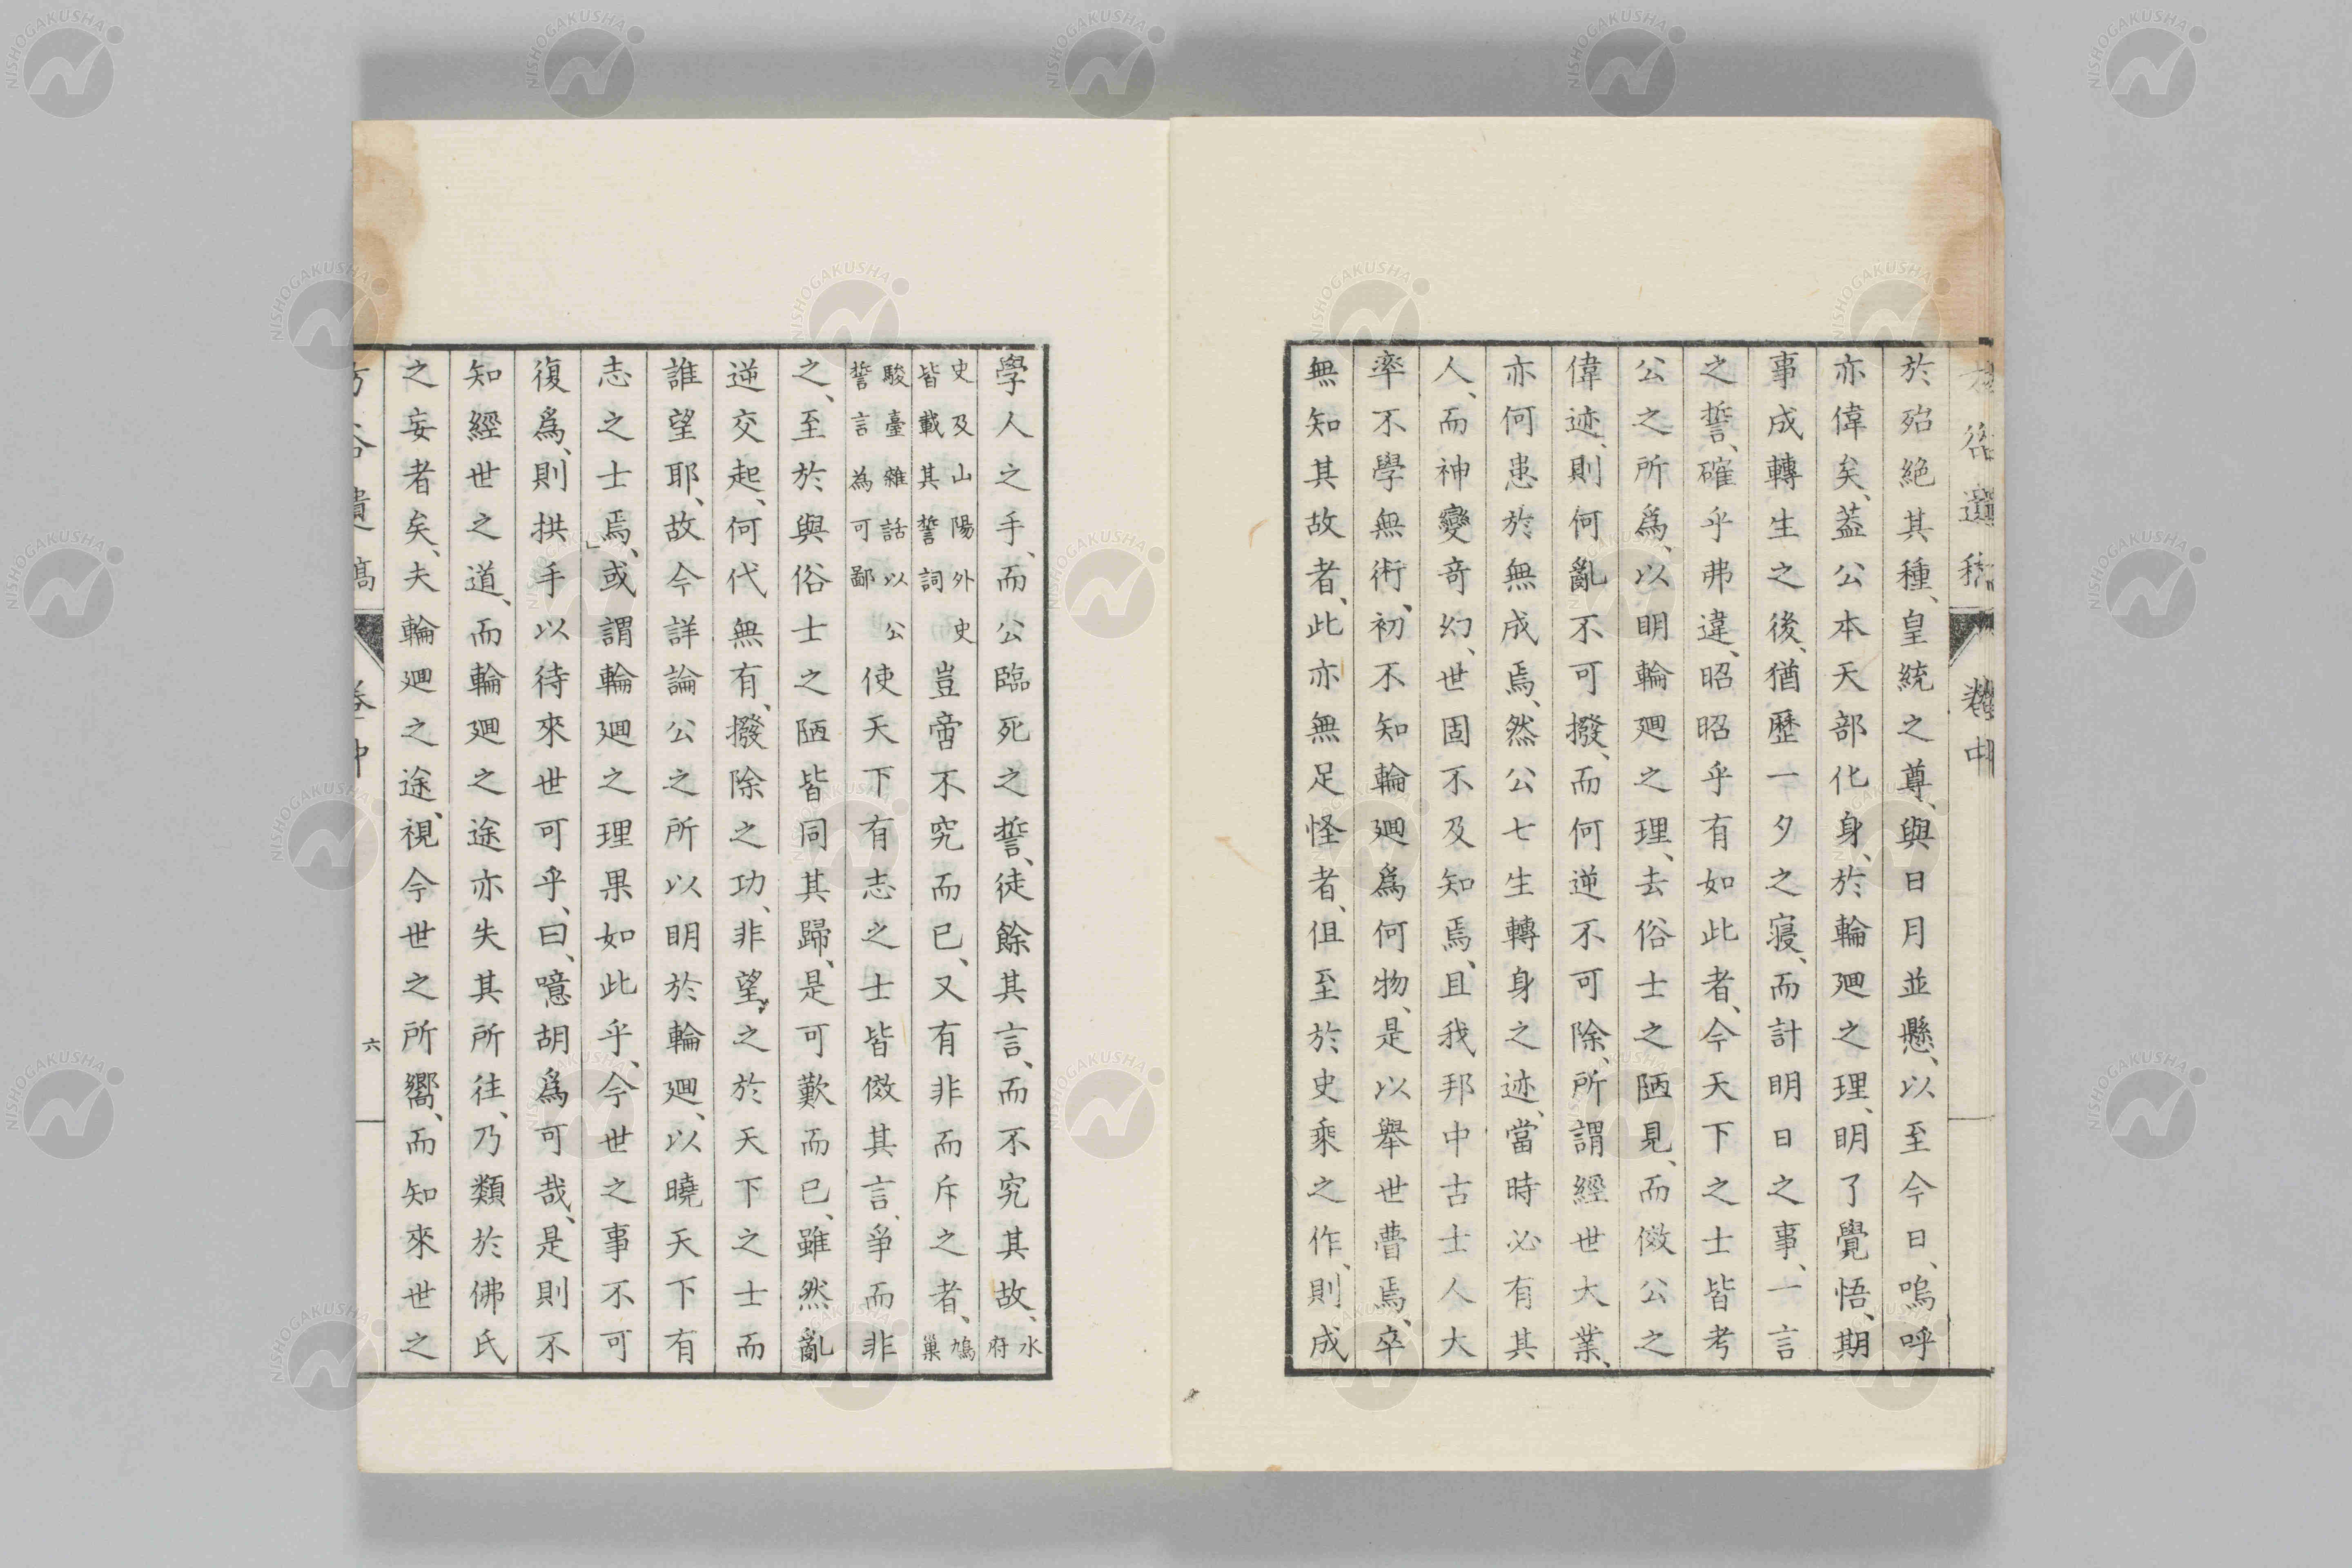 於殆絕其種、皇統之尊、與日月並懸、以至今日、嗚呼
亦偉矣、葢公本天部化身、於輪廻之理、明了覺悟、期
事成轉生之後、猶歷一夕之寢、而計明日之事、一言
之誓、確乎弗違、昭昭乎有如此者、今天下之士皆考
公之所爲、以明輪廻之理、去俗士之陋見、而傚公之
偉迹、則何亂不可撥、而何逆不可除、所謂經世大業、
亦何患於無成焉、然公七生轉身之迹、當時必有其
人、而神變奇幻、世固不及知焉、且我邦中古士人大
率不學無術、初不知輪廻爲何物、是以舉世瞢焉、卒
無知其故者、此亦無足怪者、但至於史乘之作、則成
學人之手、而公臨死之誓、徒餘其言、而不究其故、水府
史及山陽外史皆載其誓詞豈啻不究而已、又有非而斥之者、鳩巢
駿臺雜話以公誓言為可鄙使天下有志之士皆傚其言、爭而非
之、至於與俗士之陋皆同其歸、是可歎而已、雖然亂
逆交起、何代無有、撥除之功、非望之於天下之士而
誰望耶、故今詳論公之所以明於輪廻、以曉天下有
志之士焉、」或謂輪廻之理果如此乎、今世之事不可
復爲、則拱手以待來世可乎、曰、噫胡爲可哉、是則不
知經世之道、而輪廻之途亦失其所往、乃類於佛氏
之妄者矣、夫輪廻之途、視今世之所嚮、而知來世之
六